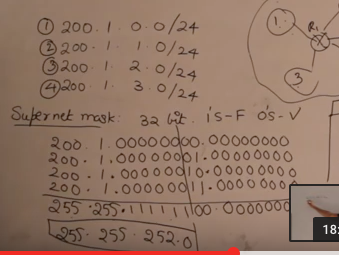 ① 200. 1. 0. 0/24
② 200. 1. 1. 0/24
③ 200. 1. 2. 0/24
④ 200. 1. 3. 0/24
1.
R1
3
Supernet mask: 32 bit. 1's-F 0's-V
200. 1. 00000000. 00000000
200. 1. 00000001. 00000000
200. 1. 00000010. 00000000
200. 1. 00000011. 00000000
255. 255. 11111100. 00000000
255. 255. 252. 0
18: